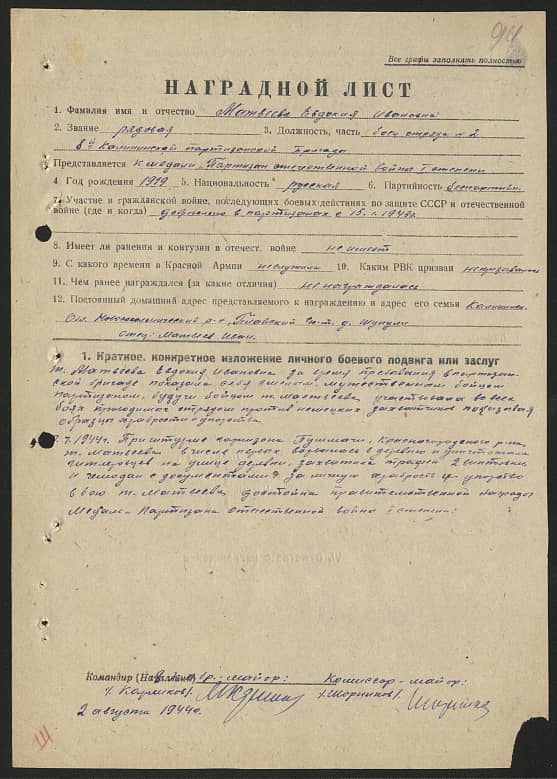 94
Все графы заполнять полностью
НАГРАДНОЙ ЛИСТ
1. Фамилия имя и отчество Матвеева Евдокия Ивановна
2. Звание рядовая 3. Должность, часть боец отряда №2
8й Калининской партизанской бригады
Представляется К медали „Партизан отечественной война I степени
4. Год рождения 1919 5. Национальность русская 6. Партийность беспартийн.
7. Участие в гражданской войне, последующих боевых действиях по защите СССР и отечественной
войне (где и когда) в партизанах с 15.1.1943г.
8. Имеет ли ранения и контузии в отечест. войне не имеет
9. С какого времени в Красной Армии не служила 10. Каким РВК призван
11. Чем ранее награждался (за какие отличия) не награждалась
12. Постоянный домашний адрес представляемого к награждению и адрес его семьи Калининс.
обл. р-н, д.
отец: Матвеев Иван.
1. Краткое, конкретное изложение личного боевого подвига или заслуг
т. Матвеева Евдокия Ивановна за время пребывания в партизан-
ской бригаде показала себя смелым, мужественным бойцом
партизаном, будучи бойцом т. Матвеева участвовала во всех
боях проводимых отрядом против немецких захватчиков показывая
образцы храбрости и упорства
7.1944г. При штурме гарнизона Красногородского р-на
т. Матвеева в числе первых ворвалась в деревню и уничтожила
гитлеровцев на улице деревни, захватила трофей 2 винтовки
и чемодан с документами. За личную храбрость и упорство
в бою т. Матвеева достойна правительственной награды
Медаль „Партизана отечественной война I степени:
Командир (Начальник) -майор: Комиссар-майор:
/Карликов/. /Шорников/.
2 августа 1944г.
Ш